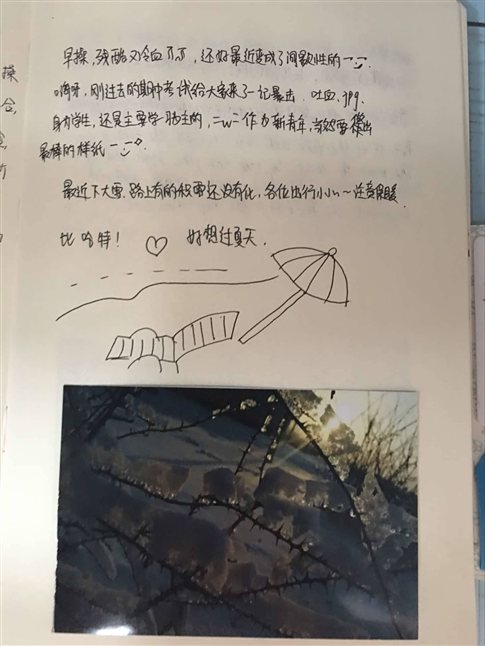 早操,残酷又冷血TTJT,还好最近变成了间歇性的一 一.
啊呀,刚过去的期中考试给大家来了一记暴击.吐血.jpg.
身为学生,还是主要学习为主的,=w=作为新青年,当然要做出
最棒的样纸一 一o.
最近下大雪.路上有的积雪还没有化,各位出行小心~注意保暖.
比哈特! 好想过夏天.
操
合